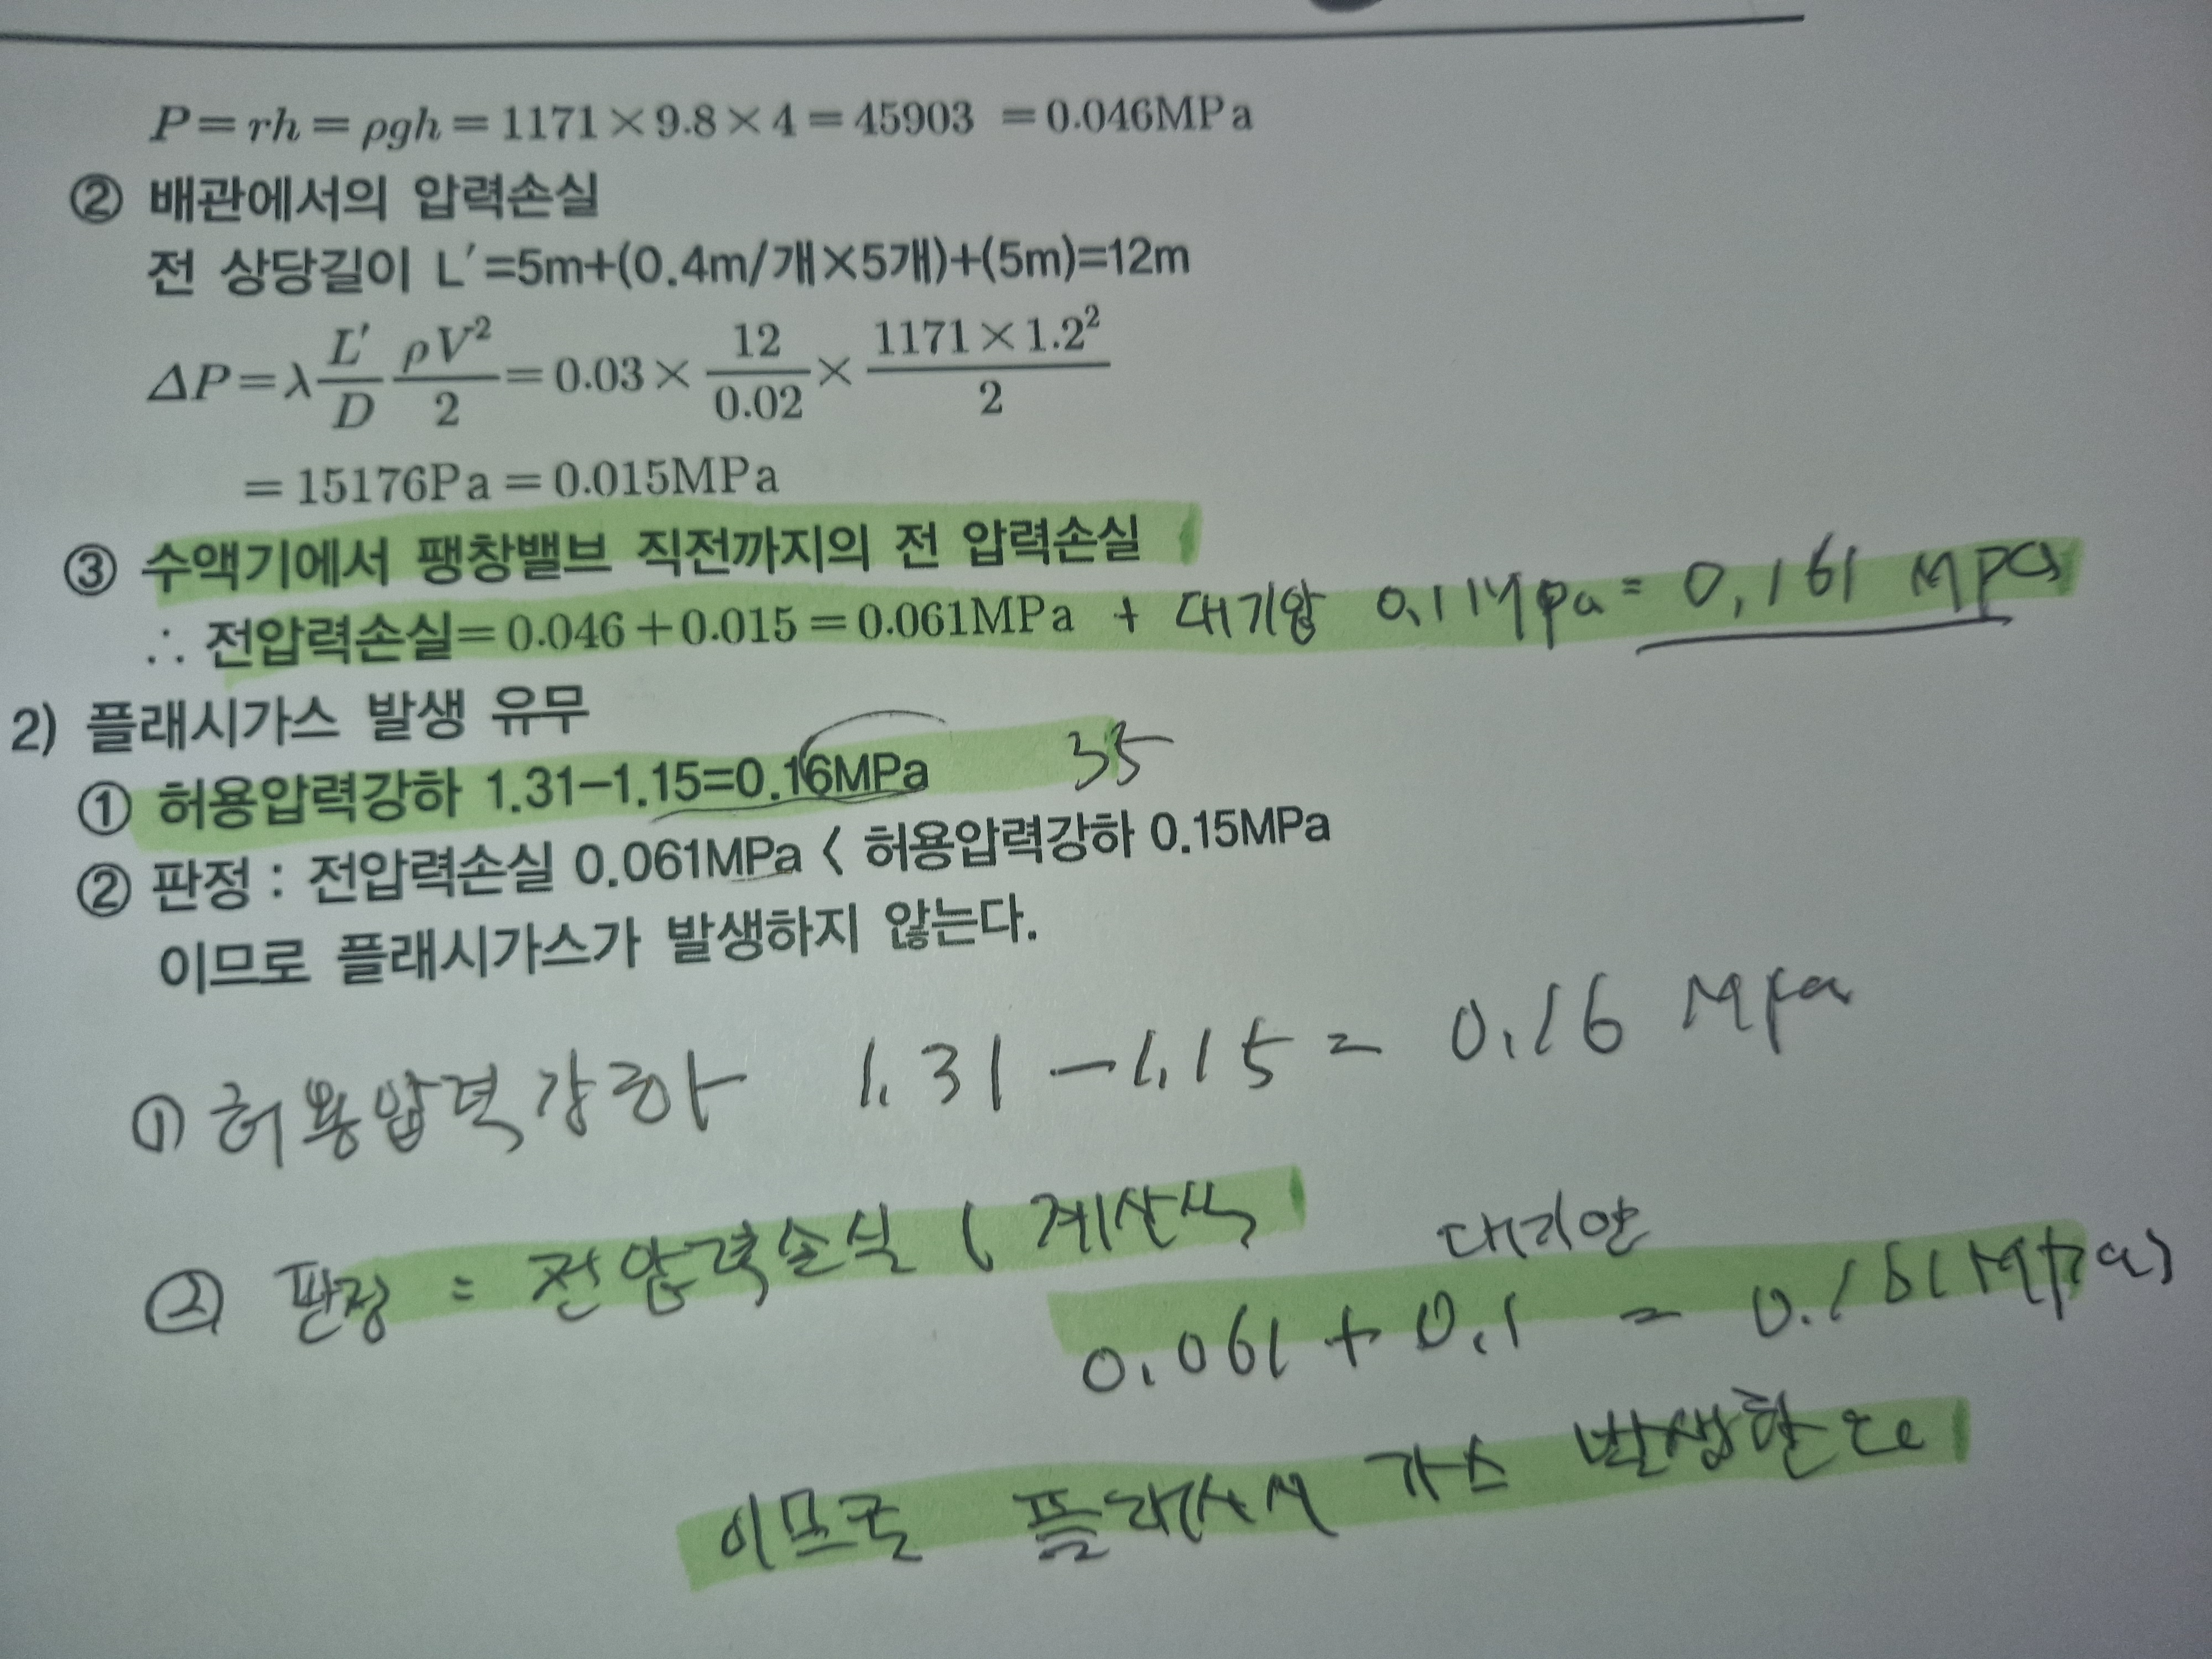 P = rh = ρgh = 1171 × 9.8 × 4 = 45903 = 0.046MPa
② 배관에서의 압력손실
전 상당길이 L′=5m+(0.4m/개×5개)+(5m)=12m
ΔP = λ L′/D ρV²/2 = 0.03 × 12/0.02 × 1171×1.2²/2
= 15176Pa = 0.015MPa
③ 수액기에서 팽창밸브 직전까지의 전 압력손실
∴ 전압력손실= 0.046 + 0.015 = 0.061MPa + 대기압 0.1MPa = 0.161 MPa
2) 플래시가스 발생 유무
① 허용압력강하 1.31-1.15=0.16MPa 35
② 판정 : 전압력손실 0.061MPa < 허용압력강하 0.15MPa
이므로 플래시가스가 발생하지 않는다.
① 허용압력강하 1.31 - 1.15 = 0.16 MPa
② 판정 = 전압력손실 ( 계산식
대기압
0.061 + 0.1 = 0.161MPa)
이므로 플래시 가스 발생한다